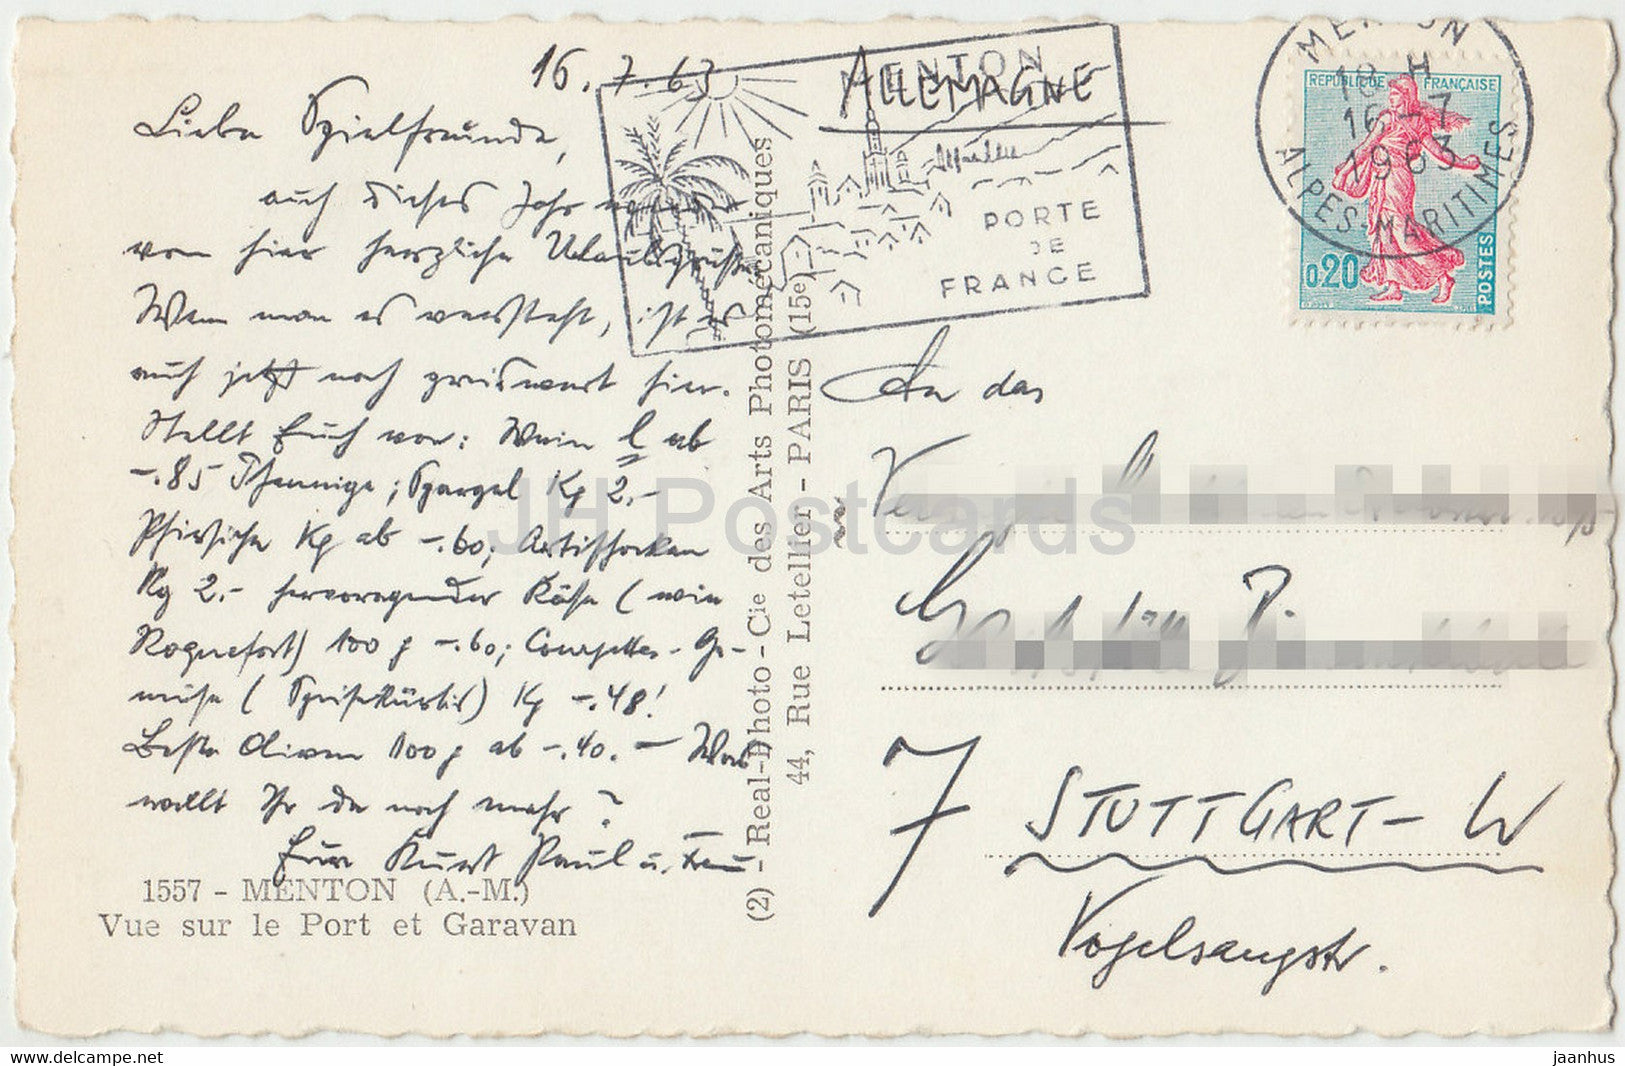 16.7.63
Liebe Spielfreunde,
auch dieses Jahr
von hier herzliche Urlaubsgrüße.
Wenn man es versteht, ist es
auch jetzt noch preiswert hier.
Stellt Euch vor: Wein l ab
-.85 Pfennige; Spargel Kg 2.-
Pfirsiche Kg ab -.60; Artischocken
Kg 2.- hervorragender Käse (wie
Roquefort) 100 g -.60; Courgettes-Ge-
müse (Speisekürbis) Kg -.48!
Beste Oliven 100 g ab -.40. - Was
wollt Ihr da noch mehr?
Euer Kurt Paul u. Frau
1557 - MENTON (A.-M.)
Vue sur le Port et Garavan
(2) - Real-Photo - Cie des Arts Photomécaniques
44, Rue Letellier - PARIS (15e)
MENTON
PORTE
DE
FRANCE
ALLEMAGNE
MENTON
18 H
16 - 7
1963
ALPES-MARITIMES
RÉPUBLIQUE FRANÇAISE
0.20
POSTES
An das
7 STUTTGART - W
Vogelsangstr.
JH Postcards
www.delcampe.net
jaanhus